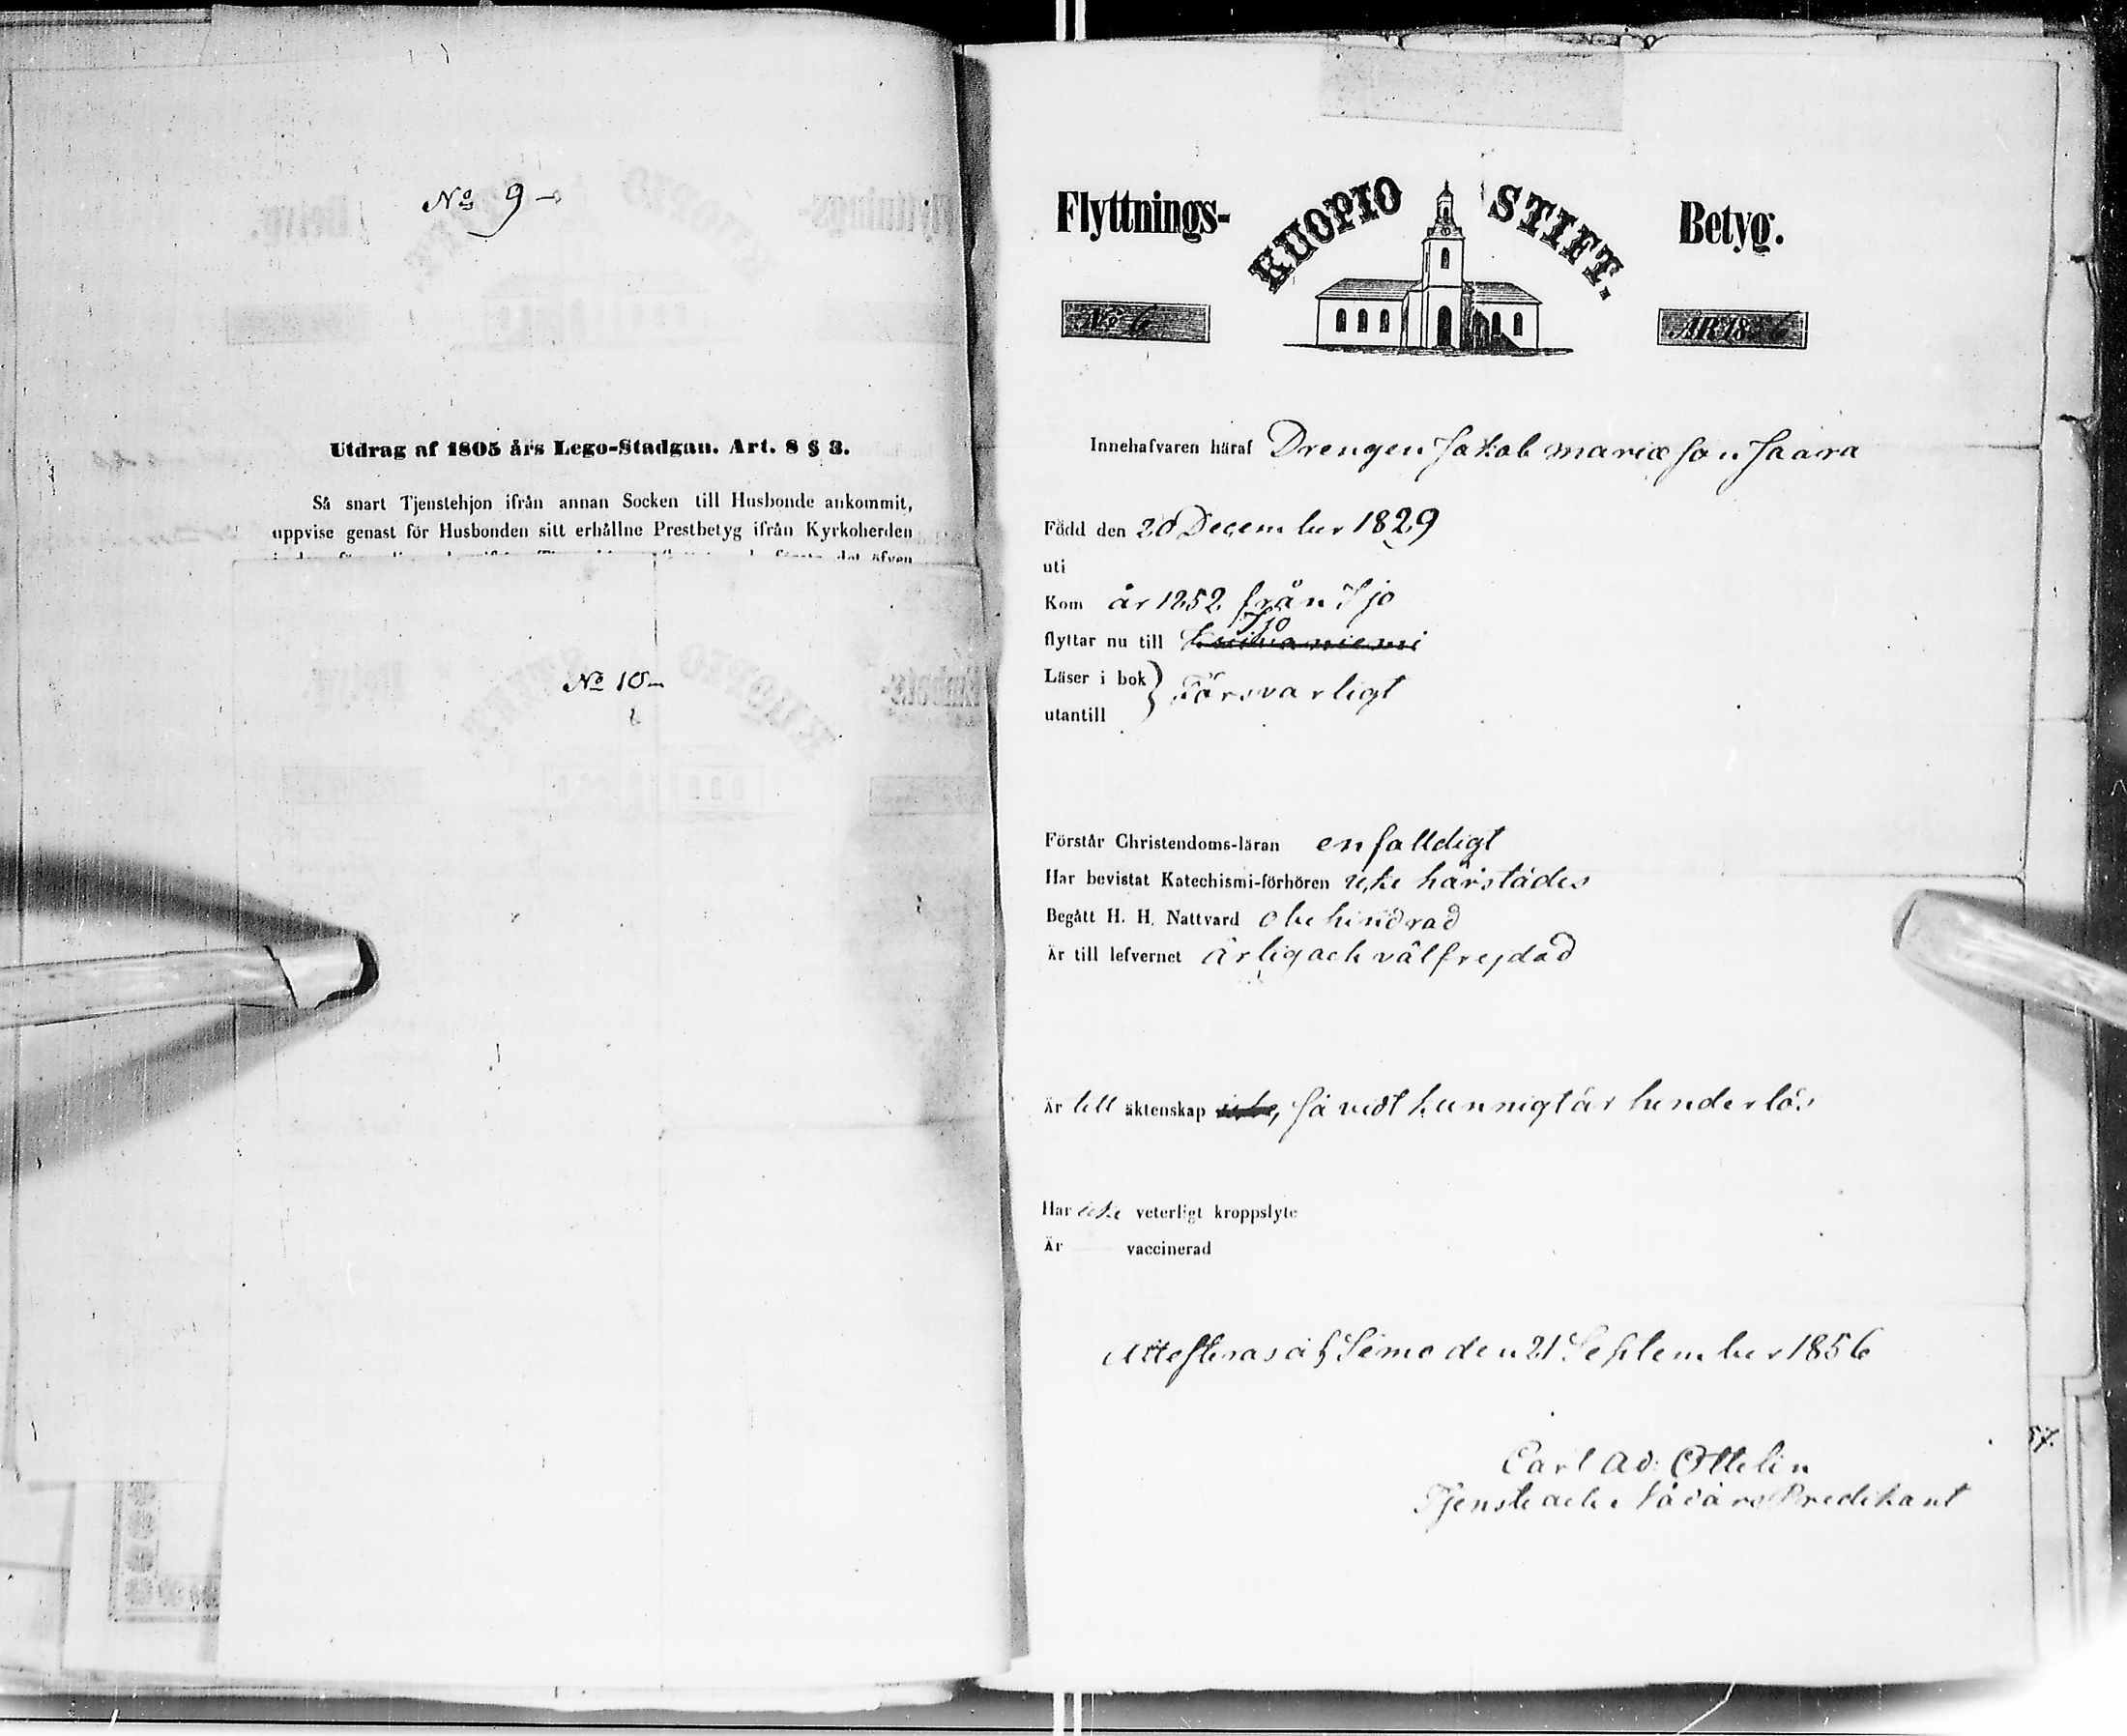 No 9 -
Utdrag af 1805 års Lego-Stadgan. Art. 8 § 3.
Så snart Tjenstehjon ifrån annan Socken till Husbonde ankommit,
uppvise genast för Husbonden sitt erhållne Prestbetyg ifrån Kyrkoherden
No 10-
Flyttnings- KUOPIO STIFT. Betyg.
No 6 ÅR 1856
Innehafvaren häraf Drengen Jakob Mariæson Jaara
Född den 20 December 1829
uti
Kom år 1852 från Ijo
Ijo
flyttar nu till Kuivaniemi
Läser i bok } Försvarligt
utantill
Förstår Christendoms-läran enfalldigt
Har bevistat Katechismi-förhören icke härstädes
Begått H. H. Nattvard obehindrad
Är till lefvernet ärlig och välfrejdad
Är till äktenskap icke, så vidt kunnigt är hinderlös
Har icke veterligt kroppslyte
Är — vaccinerad
Attesteras af Simo den 21 September 1856
57.
Carl Ad: Ottelin
Tjenste och Nådårs Predikant